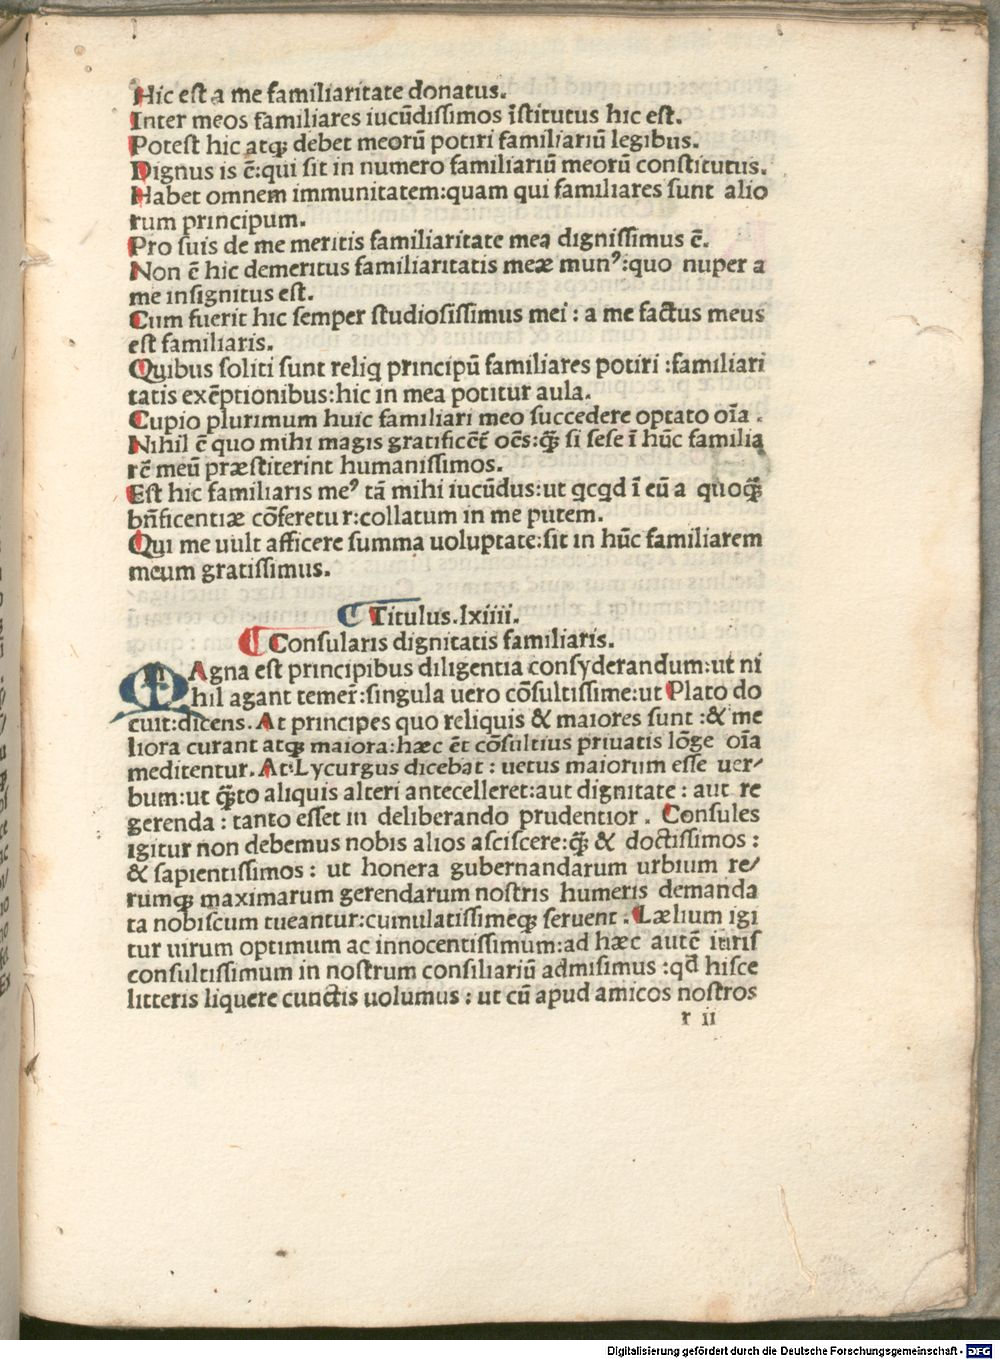 Hic est a me familiaritate donatus.
Inter meos familiares iucūdissimos īstitutus hic est.
Potest hic atqꝫ debet meorū potiri familiariū legibus.
Dignus is ē:qui sit in numero familiariū meorū constitutus.
Habet omnem immunitatem:quam qui familiares sunt alio
rum principum.
Pro suis de me meritis familiaritate mea dignissimus ē.
Non ē hic demeritus familiaritatis meæ munꝰ:quo nuper a
me insignitus est.
Cum fuerit hic semper studiosissimus mei : a me factus meus
est familiaris.
Quibus soliti sunt reliq principū familiares potiri :familiari
tatis exēptionibus:hic in mea potitur aula.
Cupio plurimum huic familiari meo succedere optato oīa .
Nihil ē quo mihi magis gratificēt̄ oēs:q̄ꝫ si sese ī hūc familia
rē meū præstiterint humanissimos.
Est hic familiaris meꝰ tā mihi iucūdus:ut qcqd ī eū a quoq̄ꝫ
bn̄ficentiæ cōferetur:collatum in me putem.
Qui me uult afficere summa uoluptate:sit in hūc familiarem
meum gratissimus.
Titulus.lxiiii.
Consularis dignitatis familiaris.
MAgna est principibus diligentia consyderandum:ut ni
hil agant temer̄:singula uero cōsultissime:ut Plato do
cuit:dicens. At principes quo reliquis & maiores sunt :& me
liora curant atqꝫ maiora:hæc ēt cōsultius priuatis lōge oīa
meditentur. At Lycurgus dicebat : uetus maiorum esse uer/
bum:ut q̄ꝫto aliquis alteri antecelleret:aut dignitate : aut re
gerenda : tanto esset in deliberando prudentior . Consules
igitur non debemus nobis alios asciscere:q̄ꝫ & doctissimos :
& sapientissimos : ut honera gubernandarum urbium re/
rumqꝫ maximarum gerendarum nostris humeris demanda
ta nobiscum tueantur:cumulatissimeqꝫ seruent . Lælium igi
tur uirum optimum ac innocentissimum:ad hæc autē iuris
consultissimum in nostrum consiliariū admisimus :qd̄ hisce
litteris liquere cunctis uolumus : ut cū apud amicos nostros
r ii
Digitalisierung gefördert durch die Deutsche Forschungsgemeinschaft - DFG